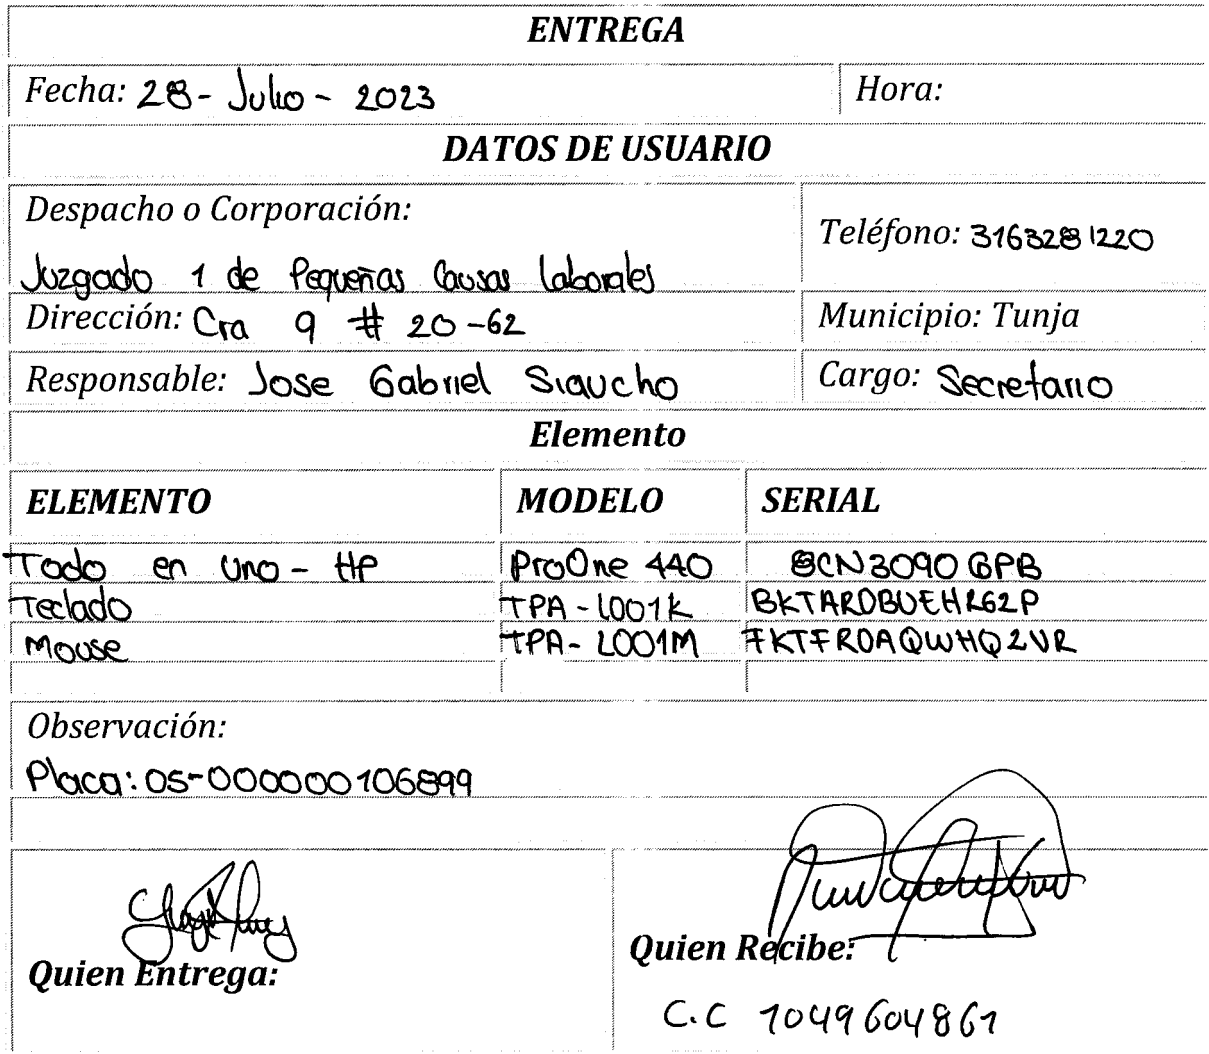 ENTREGA
Fecha: 28 - Julio - 2023 Hora:
DATOS DE USUARIO
Despacho o Corporación:
Teléfono: 3163281220
Juzgado 1 de Pequeñas Causas laborales
Dirección: Cra 9 # 20-62 Municipio: Tunja
Responsable: Jose Gabriel Siaucho Cargo: Secretario
Elemento
ELEMENTO MODELO SERIAL
Todo en uno - HP ProOne 440 8CN3090GPB
Teclado TPA-L001K BKTARDBUEHR62P
Mouse TPA-L001M FKTFRDAQWHQ2VR
Observación:
Placa: 05-000000106899
Quien Entrega: Quien Recibe:
C.C 1049604861